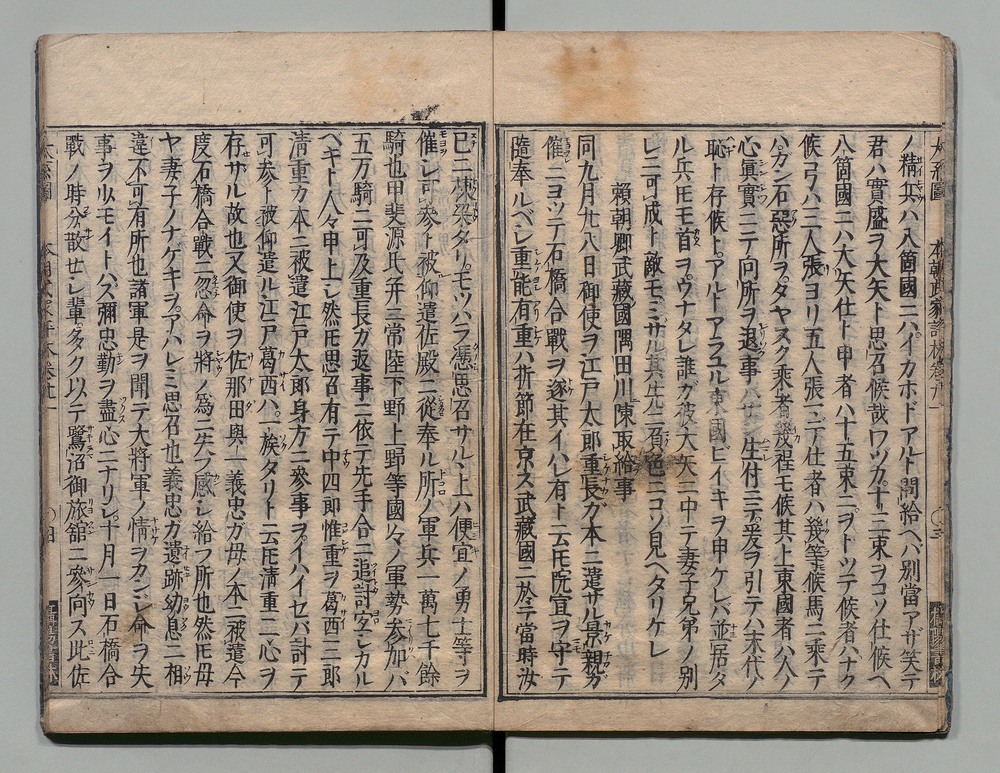 ノ精兵ハ八箇國ニハイカホドアルト問給ヘバ別當アザ笑テ
君ハ實盛ヲ大矢ト思召候哉ワツカ十三束ヲコソ仕候ヘ
八箇國ニハ大矢仕ト申者ハ十五束ニヲトツテ候者ハナク
候弓ハ三人張ヨリ五人張ニテ仕者ハ幾等モ候馬ニ乘テ
ハカン石惡所ヲタヤスク乘者幾程モ候其上東國者ハ人ノ
心眞實ニテ向所ヲ退事ハサシ生付ニテ爰ヲ引テハ末代ノ
恥ト存候トアルトアラユル東國ビイキヲ申ケレバ並居タ
ル兵𪜈モ首ヲウナタレ誰ガ彼大矢ニ中テ妻子兄弟ノ別
レニ可成ト敵モミサル其先ニ損色ニコソ見ヘタリケレ
賴朝卿武藏國隅田川陳取給事
同九月廿八日御使ヲ江戸太郎重長ガ本ニ遣サル景親ガ
催ニヨツテ石橋合戰ヲ遂其イハレ有ト云𪜈院宣ヲ守テ
隨奉ルベシ重能有重ハ折節在京ス武藏國ニ於テ當時汝
已ニ棟梁タリモツハラ憑思召サルヽ上ハ便宜ノ勇士等ヲ
催シ可參ト被仰遣佐殿ニ從奉ル所ノ軍兵一萬七千餘
騎也甲斐源氏幷ニ常陸下野上野等國々ノ軍勢參加バ
五万騎ニ可及重長ガ返事ニ依テ先手合ニ追討セシカル
ベキト人々申上シ然𪜈思召有テ中四郎惟重ヲ葛西三郎
淸重カ本ニ被遣江戸太郎身方ニ參事ヲイハイセバ討テ
可參ト被仰遣ル江戸葛西ハ一族タリト云𪜈淸重二心ヲ
存サル故也又御使ヲ佐那田與一義忠ガ母ノ本ニ被遣今
度石橋合戰ニ忽命ヲ將ノ爲ニ失フ感シ給フ所也然𪜈母
ヤ妻子ノナゲキヲアハレミ思召也義忠ガ遺跡幼息ニ相
違不可有所也諸軍是ヲ聞テ大將軍ノ情ヲカンシ命ヲ失
事ヲ以モイトハズ彌忠勤ヲ盡心ニナリシ十月一日石橋合
戰ノ時分散セシ輩多ク以テ鷺沼御旅舘ニ參向ス此佐